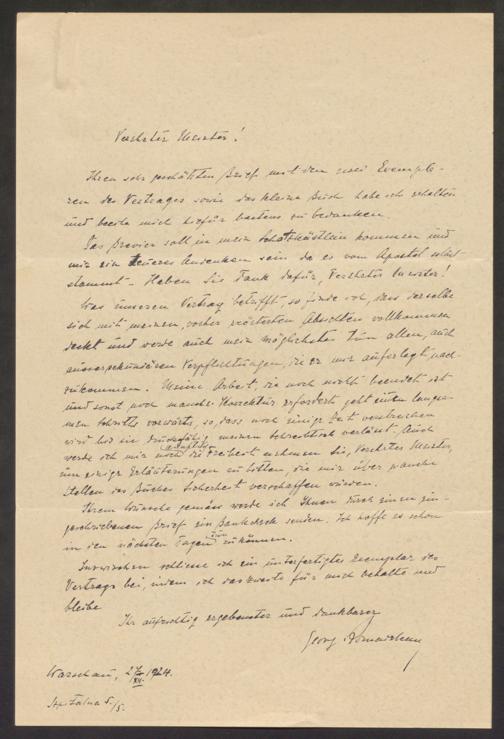 Verehrter Meister!
Ihren sehr geschätzten Brief mit den zwei Exempla-
ren des Vertrages sowie das kleine Buch habe ich erhalten
und beeile mich hiefür bestens zu bedanken.
Das Brevier soll in mein Schatzkästlein kommen und
mir ein teueres Andenken sein da es vom Apostel selbst
stammt – Haben Sie Dank dafür, Verehrter Meister!
Was unseren Vertrag betrifft, so finde ich, dass derselbe
sich mit meinen, vorher erörterten Absichten vollkommen
deckt und werde auch mein möglichstes tun allen, auch
Verpflichtungen, die er mir auferlegt, nach-
zukommen. Meine Arbeit, die noch nicht beendet ist
und sonst noch manche Korrektur erfordert, geht einen langsa-
men Schritts vorwärts, so, dass noch einige Zeit verstreichen
wird bis sie druckfähig meinen Schreibtisch verlässt. Auch
werde ich mir noch die Freiheit nehmen Sie, Verehrter Meister,
um einige Erläuterungen zu bitten, die mir über manche
Stellen des Buches Sicherheit verschaffen würden.
Ihrem Wunsche gemäss werde ich Ihnen durch einen ein-
geschriebenen Brief ein Bankcheck senden. Ich hoffe es schon
in den nächsten Tagen tun zu können.
Inzwischen schliesse ich ein unterfertigtes Exemplar des
Vertrags bei, indem ich das zweite für mich behalte und
bleibe
Ihr aufrichtig ergebenster und dankbarer
Georg
Warschau, 27/XII. 1924.
5/5.